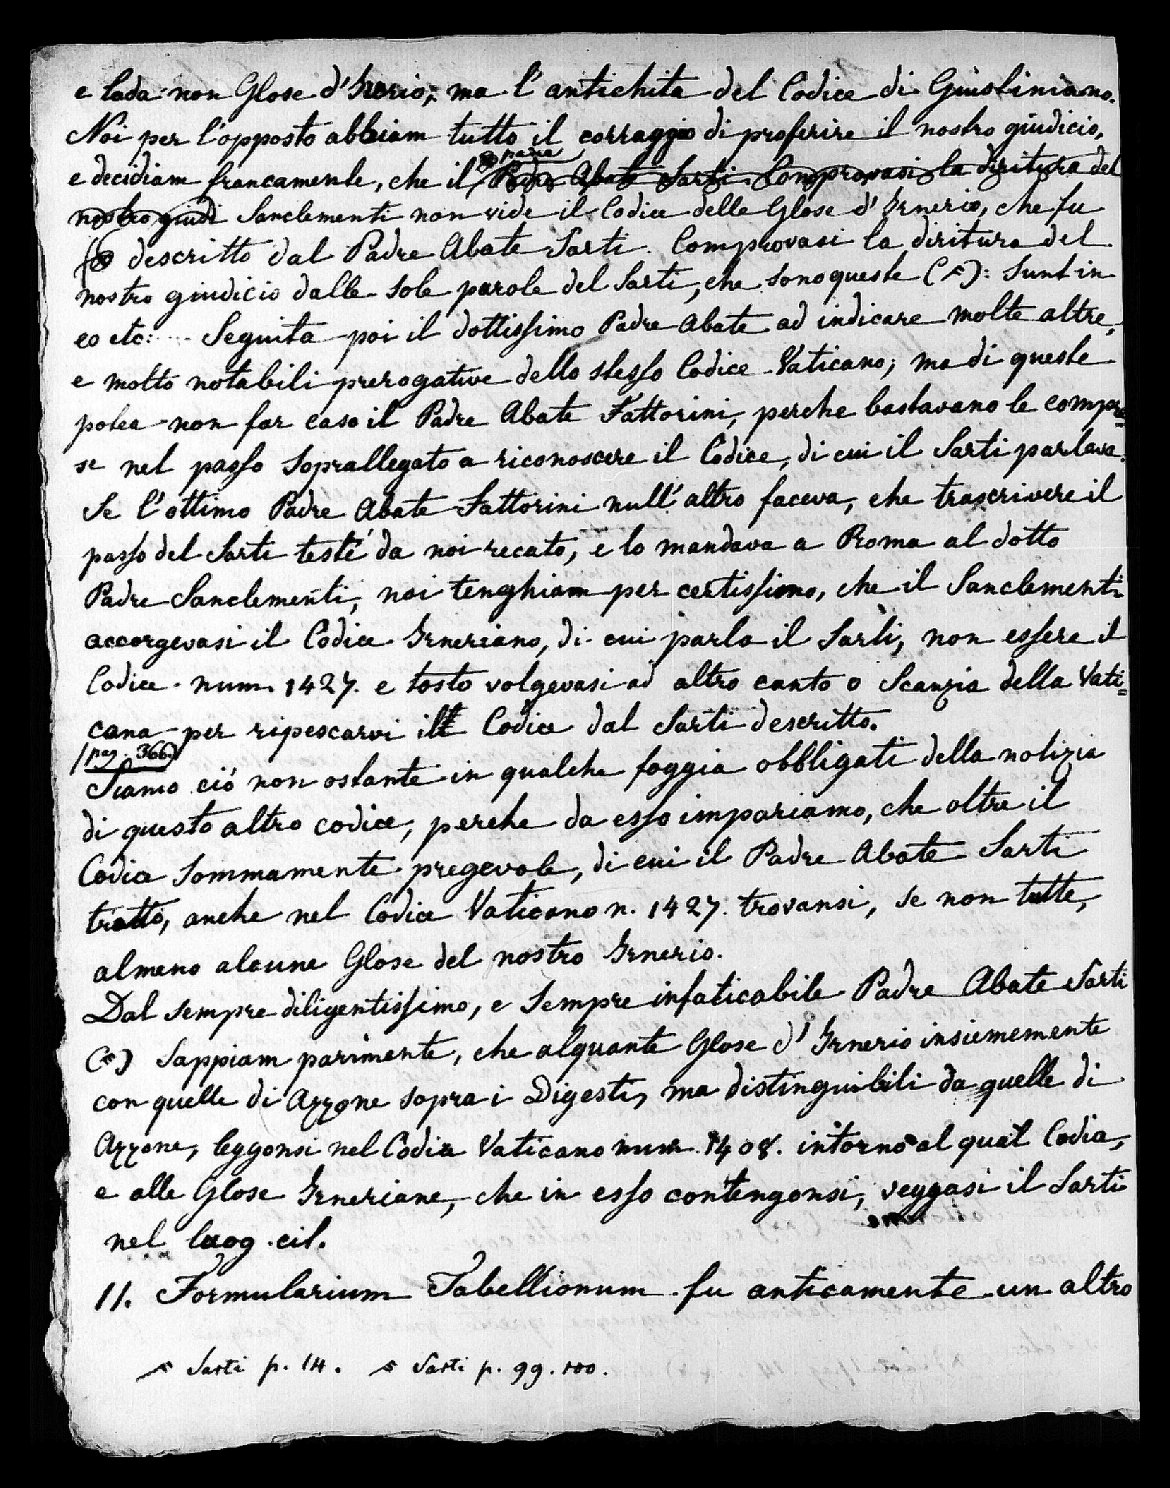 e loda non Glose d'Irnerio, ma l'antichita del Codice di Giustiniano.
Noi per l'opposto abbiam tutto il corraggio di proferire il nostro giudicio,
padre
e decidiam francamente, che il Pdre Abate Sarti. Comprovasi la diritura del
nostro giudi Sanclementi non vide il Codice delle Glose d'Irnerio, che fu
descritto dal Padre Abate Sarti. Comprovasi la diritura del
nostro giudicio dalle sole parole del Sarti, che sono queste (*): Sunt in
eo etc:.... Seguita poi il dottissimo Padre Abate ad indicare molte altre,
e molto notabili prerogative dello stesso Codice Vaticano; ma di queste
potea non far caso il Padre Abate Fattorini, perche bastavano le compre=
se nel passo soprallegato a riconoscere il Codice, di cui il Sarti parlava.
Se l'ottimo Padre Abate Fattorini null'altro faceva, che trascrivere il
passo del Sarti testé da noi recato, e lo mandava a Roma al dotto
Padre Sanclementi, noi tenghiam per certissimo, che il Sanclementi
accorgevasi il Codice Irneriano, di cui parla il Sarti, non essere il
Codice num. 1427. e tosto volgevasi ad altro canto o Scanzia della Vati=
cana per ripescarvi il Codice dal Sarti descritto.
/pag. 366/
Siamo ciò non ostante in qualche foggia obbligati della notizia
di questo altro codice, perche da esso impariamo, che oltre il
Codice sommamente pregevole, di cui il Padre Abate Sarti
trattò, anche nel Codice Vaticano n. 1427. trovansi, se non tutte,
almeno alcune Glose del nostro Irnerio.
Dal sempre diligentissimo, e sempre infaticabile Padre Abate Sarti
(*) sappiam parimente, che alquante Glose d'Irnerio insiememente
con quelle di Azzone sopra i Digesti, ma distinguibili da quelle di
Azzone, leggonsi nel Codice Vaticano num. 1408. intorno al qual Codice,
e alle Glose Irneriane, che in esso contengonsi, veggasi il Sarti
nel luog. cit.
11. Formularium Tabellionum fu anticamente un altro
* Sarti p. 14. * Sarti p. 99. 100.